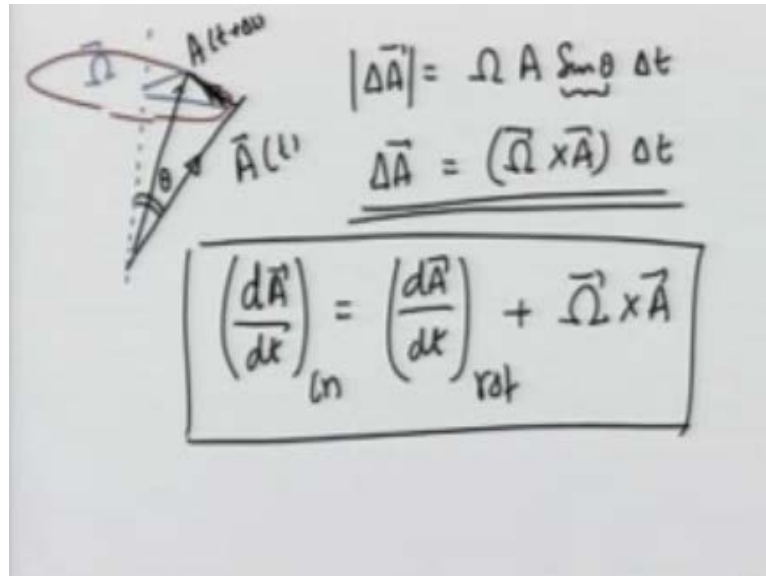 A(t+Δt)
Ω⃗
|ΔA⃗| = Ω A Sinθ Δt
A⃗(t)
θ
ΔA⃗ = (Ω⃗ × A⃗) Δt
(dA⃗/dt)in = (dA⃗/dt)rot + Ω⃗ × A⃗